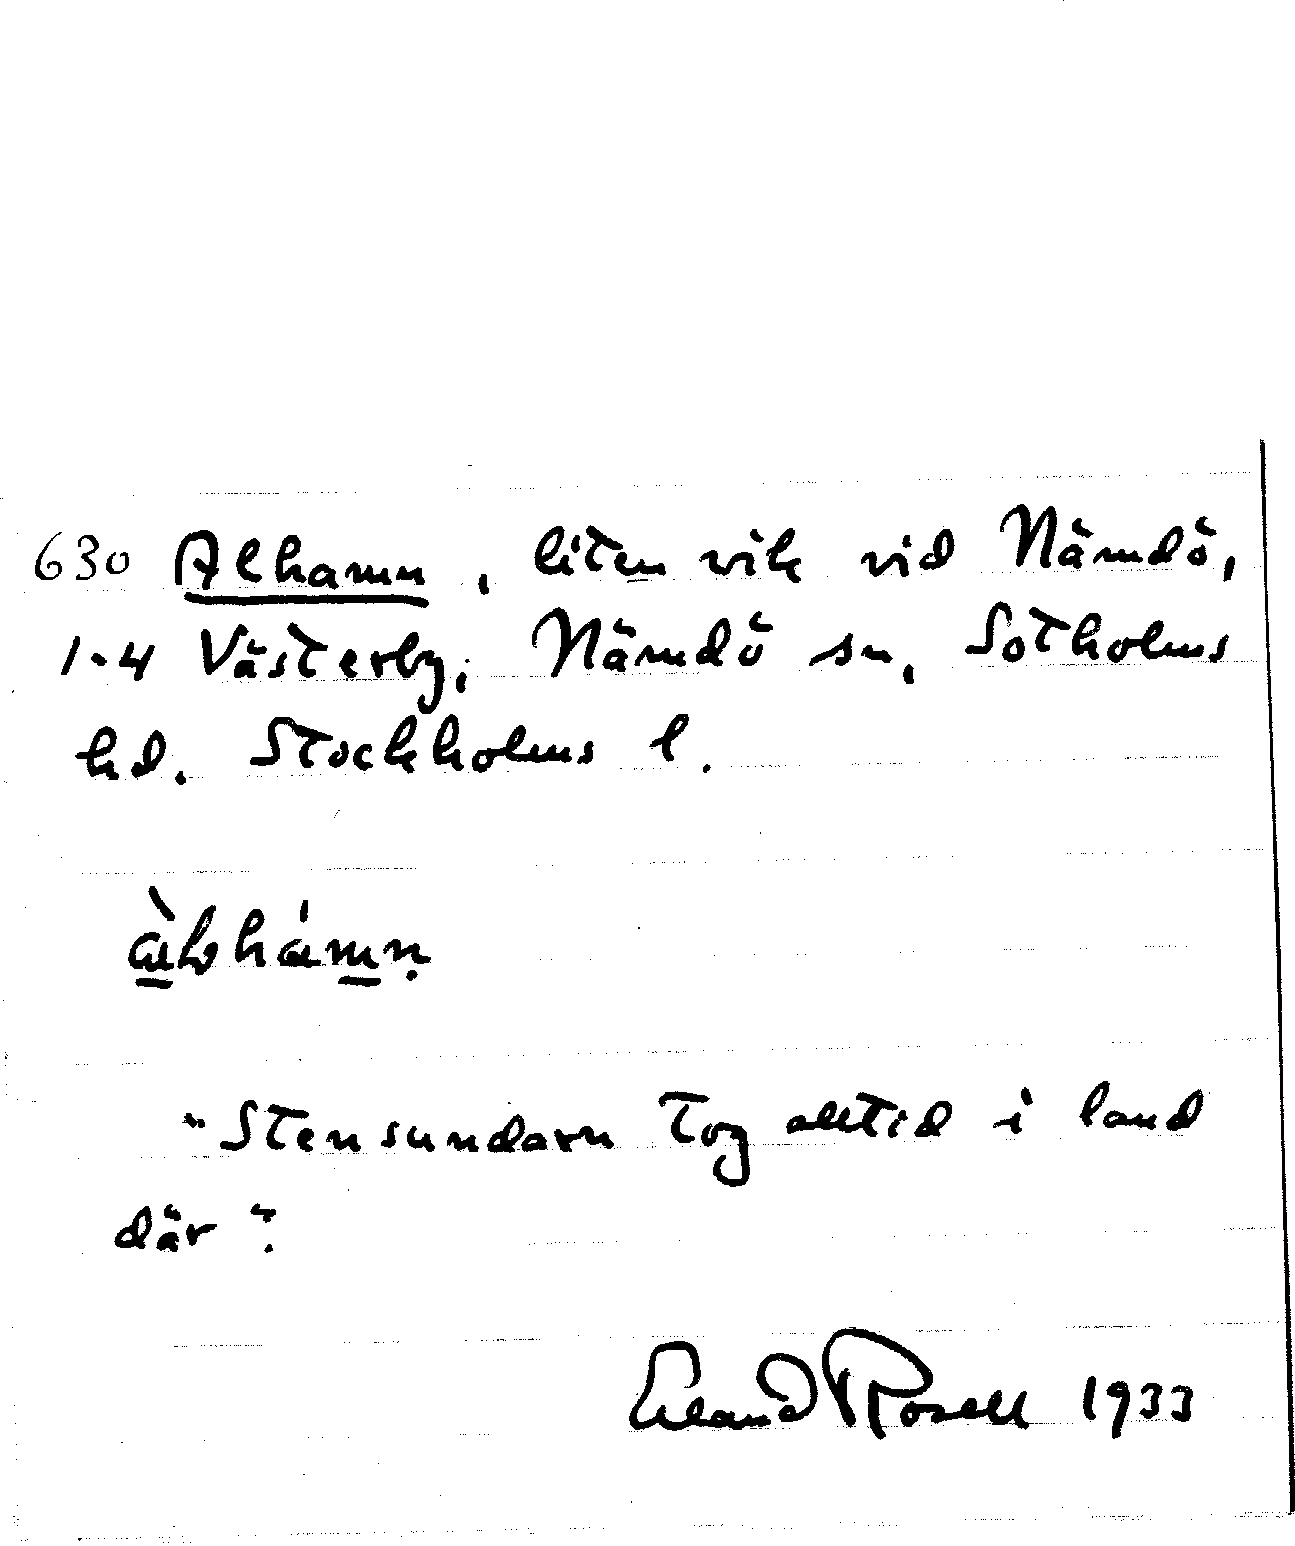 630 Alhamn, liten vik vid Nämdö,
1-4 Västerby, Nämdö sn, Sotholms
hd. Stockholms l.
"Stensundarn tog alltid i land
där".
Erland Rosell 1933